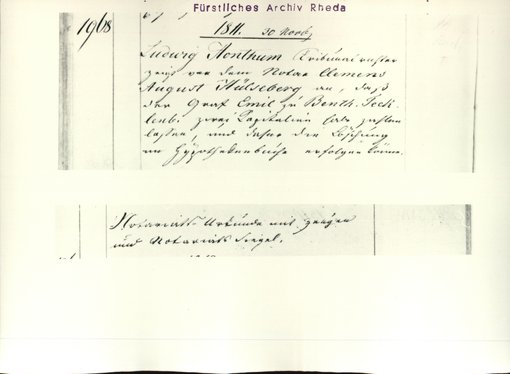 Fürstliches Archiv Rheda
1968
1811. 30 Novbr
Ludwig Monthum Tribunalrichter
zeigt vor dem Notar Clemens
August Hülseberg an, daß
der Graf Emil zu Benth. Teck-
lenb. zwei Kapitalien habe
und daher die Löschung
im Hypothekenbuche erfolgen könne.
Notariats-Urkunde mit Zeugen
und Notariats Siegel.